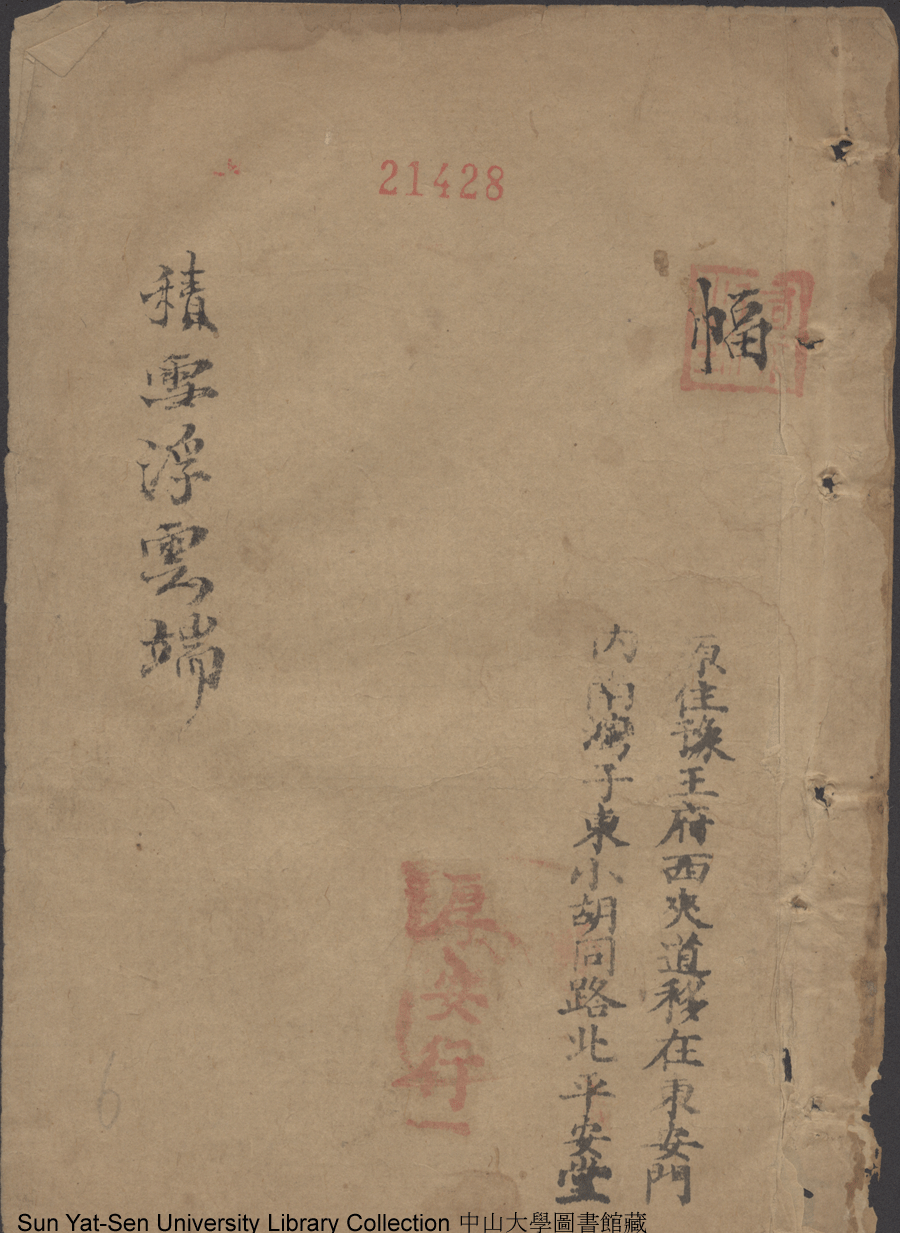 21428
幅
原住豫王府西夾道移在東安門
内南灣子東小胡同路北平安堂
積雪浮雲端
Sun Yat-Sen University Library Collection 中山大學圖書館藏